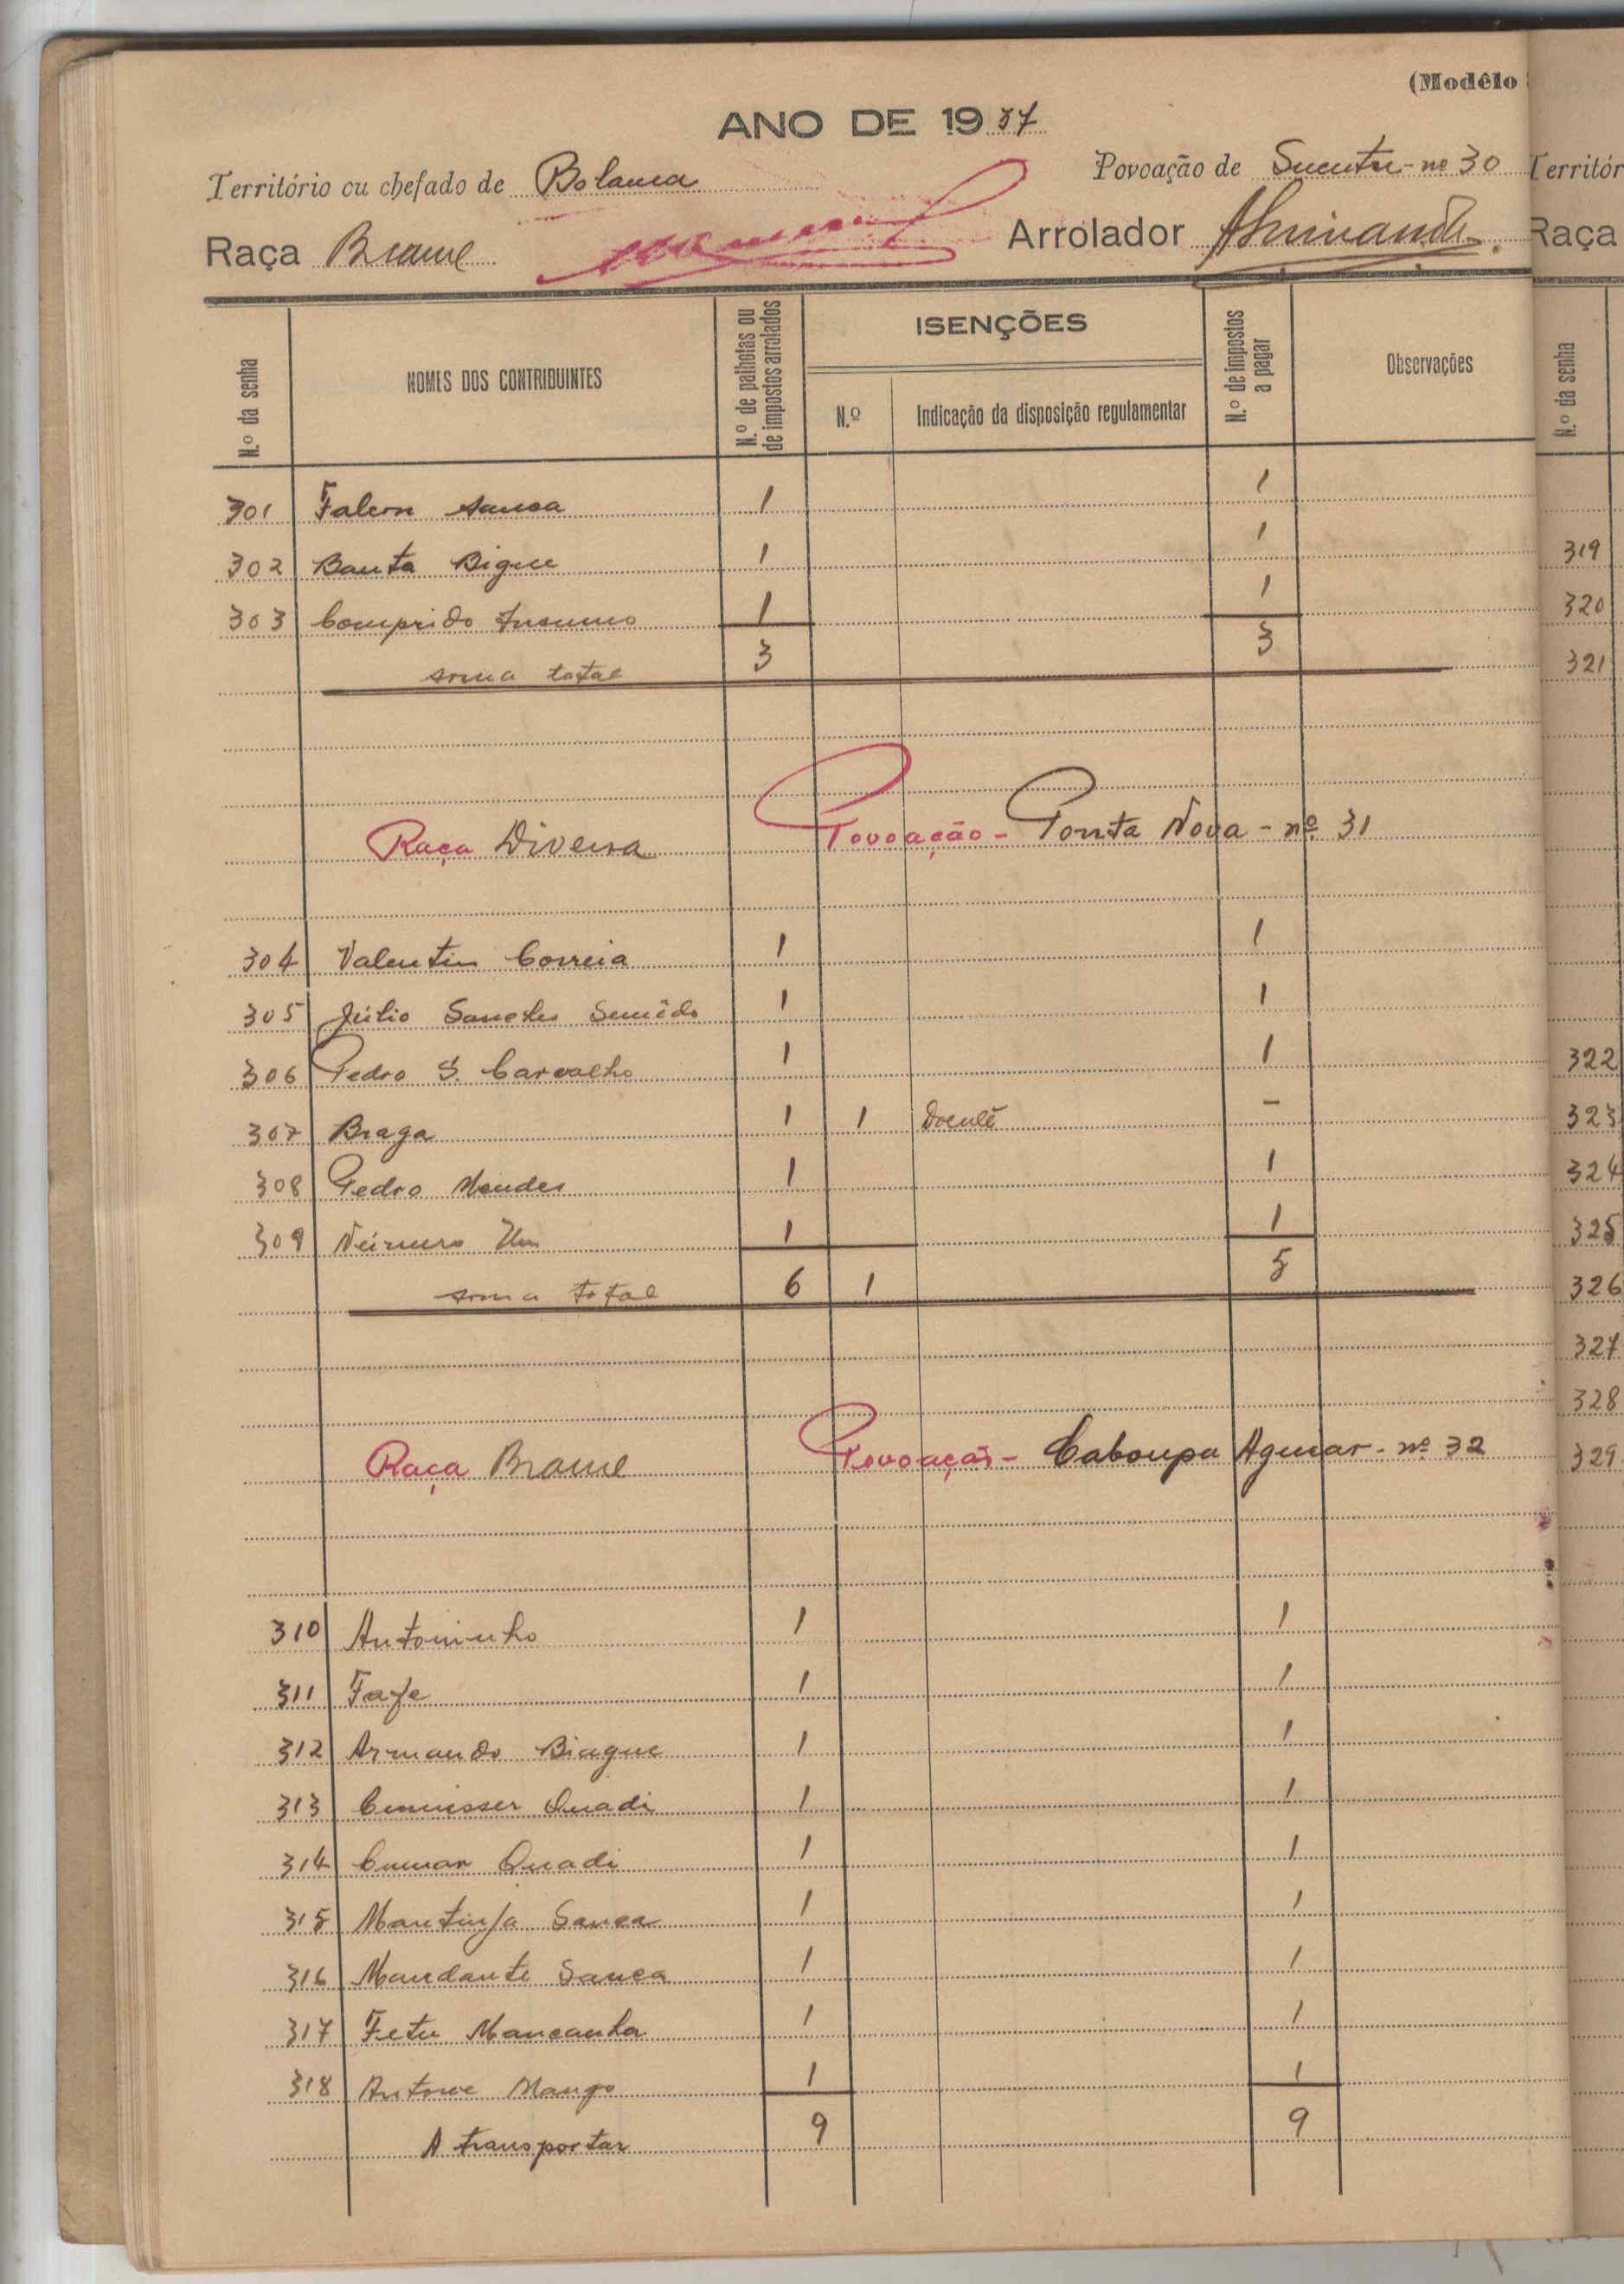 (Modêlo
ANO DE 1937
Território ou chefado de Bolama
Povoação de Sucuto - nº 30
Raça Brame
Arrolador
N.º da senha
NOMES DOS CONTRIBUINTES
N.º de palhotas ou de impostos arrolados
ISENÇÕES
N.º
Indicação da disposição regulamentar
N.º de impostos a pagar
Observações
301 Falcon Sanca 1 1
302 Banta Bigue 1 1
303 Comprido 1 1
soma total 3 3
Raça Diversa Povoação - Ponta Nova - nº 31
304 Valentim Correia 1 1
305 Júlio Sanches Semêdo 1 1
306 Pedro S. Carvalho 1 1
307 Braga 1 1 Doente -
308 Pedro Mendes 1 1
309 1 1
soma total 6 1 5
Raça Brame Povoação - Caboupa Aguiar - nº 32
310 Antoninho 1 1
311 Fafe 1 1
312 Armando Biague 1 1
313 Quadi 1 1
314 Quadi 1 1
315 Mantinja Sanca 1 1
316 Mandante Sanca 1 1
317 Fetu Mancanha 1 1
318 Antone Mango 1 1
A transportar 9 9
Territór
Raça
N.º da senha
319
320
321
322
323
324
325
326
327
328
329